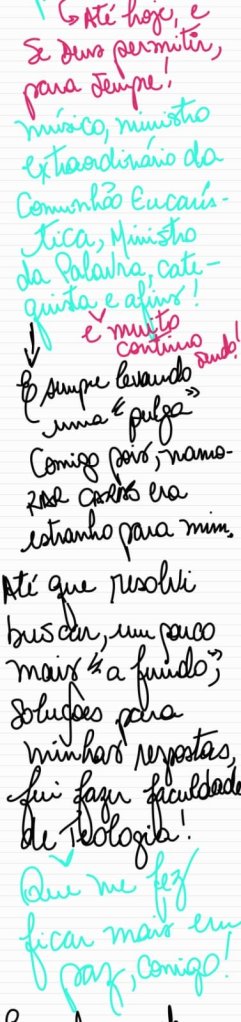 ↳ Até hoje, e
se Deus permitir,
para sempre!
músico, ministro
extraordinário da
Comunhão Eucarís-
tica, Ministro
da Palavra, cate-
quista e afins!
e muito
continuo sendo!
E sempre levando
uma "pulga"
Comigo pois, namo-
RAR CARAS era
estranho para mim.
Até que resolvi
buscar, um pouco
mais "a fundo",
soluções para
minhas respostas,
fui fazer faculdade
de Teologia!
Que me fez
ficar mais em
paz, comigo!